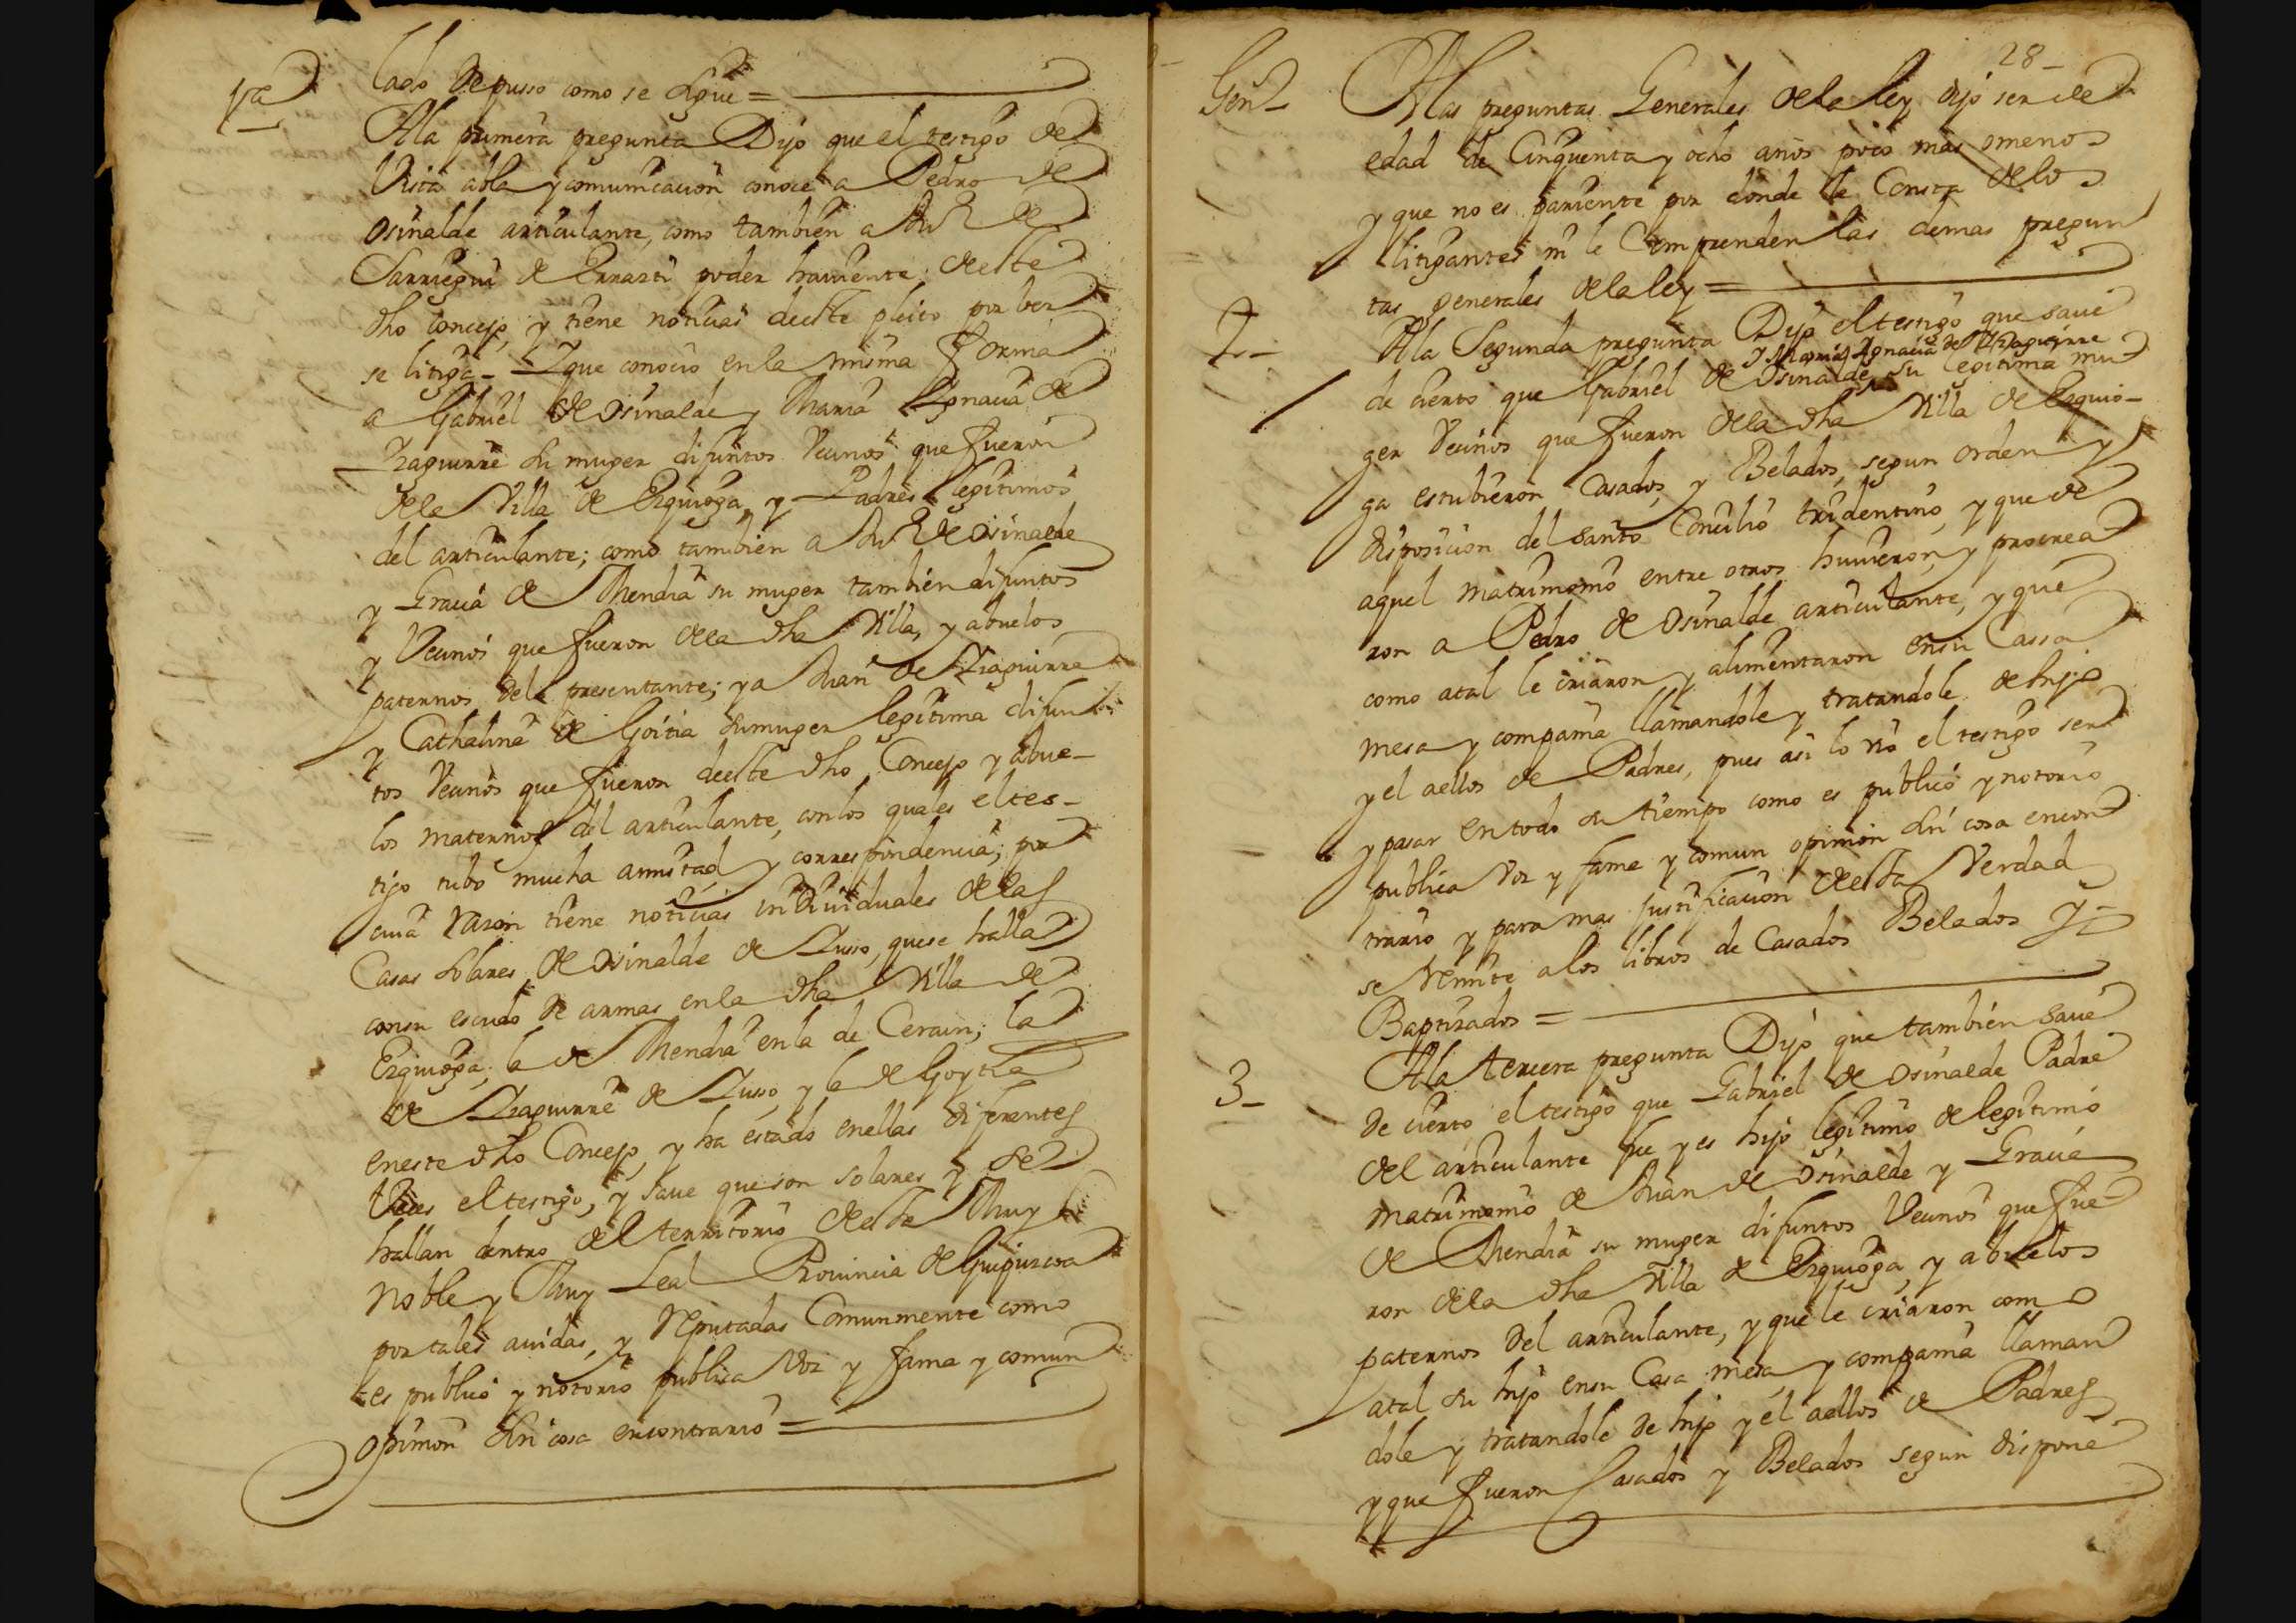 lado depusso como se sigue =
1ª
Ala primera pregunta Dijo que el testigo de
Vista abla y comunicacion conoce a Pedro de
Osinalde articulante, como tambien a Juº de
Sarriegui de Errazti poder haviente deeste
dho concejo, y tiene noticias deeste pleito por ber
se litiga - Y que conocio en la misma forma
a Gabriel de Osinalde y Maria Ygnacia de
Yzaguirre su muger difuntos Vecinos que fueron
dela Villa de Ezquioga, y Padres legitimos
del articulante; como tambien a Juº de Osinalde
y Gracia de Mendia su muger tambien difuntos
y Vecinos que fueron dela dha Villa, y abuelos
paternos del presentante; ya Juan de Yzaguirre
y Cathalina de Goitia su muger legitima difun
tos Vecinos que fueron deeste dho Concejo y abue-
los maternos del articulante, con los quales el tes-
tigo tubo mucha amistad y correspondencia; por
cuia razon tiene noticias individuales de las
Casas Solares de Osinalde de Suso, que se halla
con su escudo de armas en la dha Villa de
Ezquioga; la de Mendia en la de Cerain; la
de Yzaguirre de Suso y la de Goytia
eneste dho Concejo, y ha estado enellas diferentes
Vezes el testigo, y save que son solares y se
hallan dentro del territorio deesta Muy
Noble y Muy Leal Provincia de Guipuzcoa
por tales avidas, y Reputadas Comunmente como
es publico y notorio publica Voz y fama y comun
opinion sin cosa encontrario =
28-
Genˢ-
Alas preguntas Generales dela ley dijo ser de
edad de Cinquenta y ocho años poco mas omenos
y que no es pariente por donde le Consta delos
litigantes ni le Comprenden las demas pregun
tas generales dela ley =
2-
Ala Segunda pregunta Dijo el testigo que save
y Maria Ygnacia de Yzaguirre
de cierto que Gabriel de Osinalde su legitima mu
ger Vecinos que fueron dela dha Villa de Ezquio-
ga estubieron Casados, y Belados, segun orden y
disposicion del Santo Concilio tridentino, y que de
aquel matrimonio entre otros huvieron y procrea
ron a Pedro de Osinalde articulante, y que
como atal le criaron y alimentaron ensu Cassa
mesa y compania llamandole y tratandole de hijo
y el aellos de Padres, pues asi lo vio el testigo ser
y pasar entodo su tiempo como es publico y notorio
publica Voz y fame y comun opinion sin cosa encon
trario y para mas justificacion deesta Verdad
se Remite alos libros de Casados Belados y-
Baptizados =
3-
Ala tercera pregunta Dijo que tambien Save
de cierto el testigo que Gabriel de Osinalde Padre
del articulante fue y es hijo legitimo de legitimo
matrimonio de Juan de Osinalde y Gracia
de Mendia su muger difuntos Vecinos que fue-
ron dela dha Villa de Ezquioga, y abuelos
paternos del articulante, y que le criaron como
atal su hijo ensu Casa mesa y compania llaman
dole y tratandole de hijo y el aellos de Padres
y que fueron Casados y Belados segun dispone